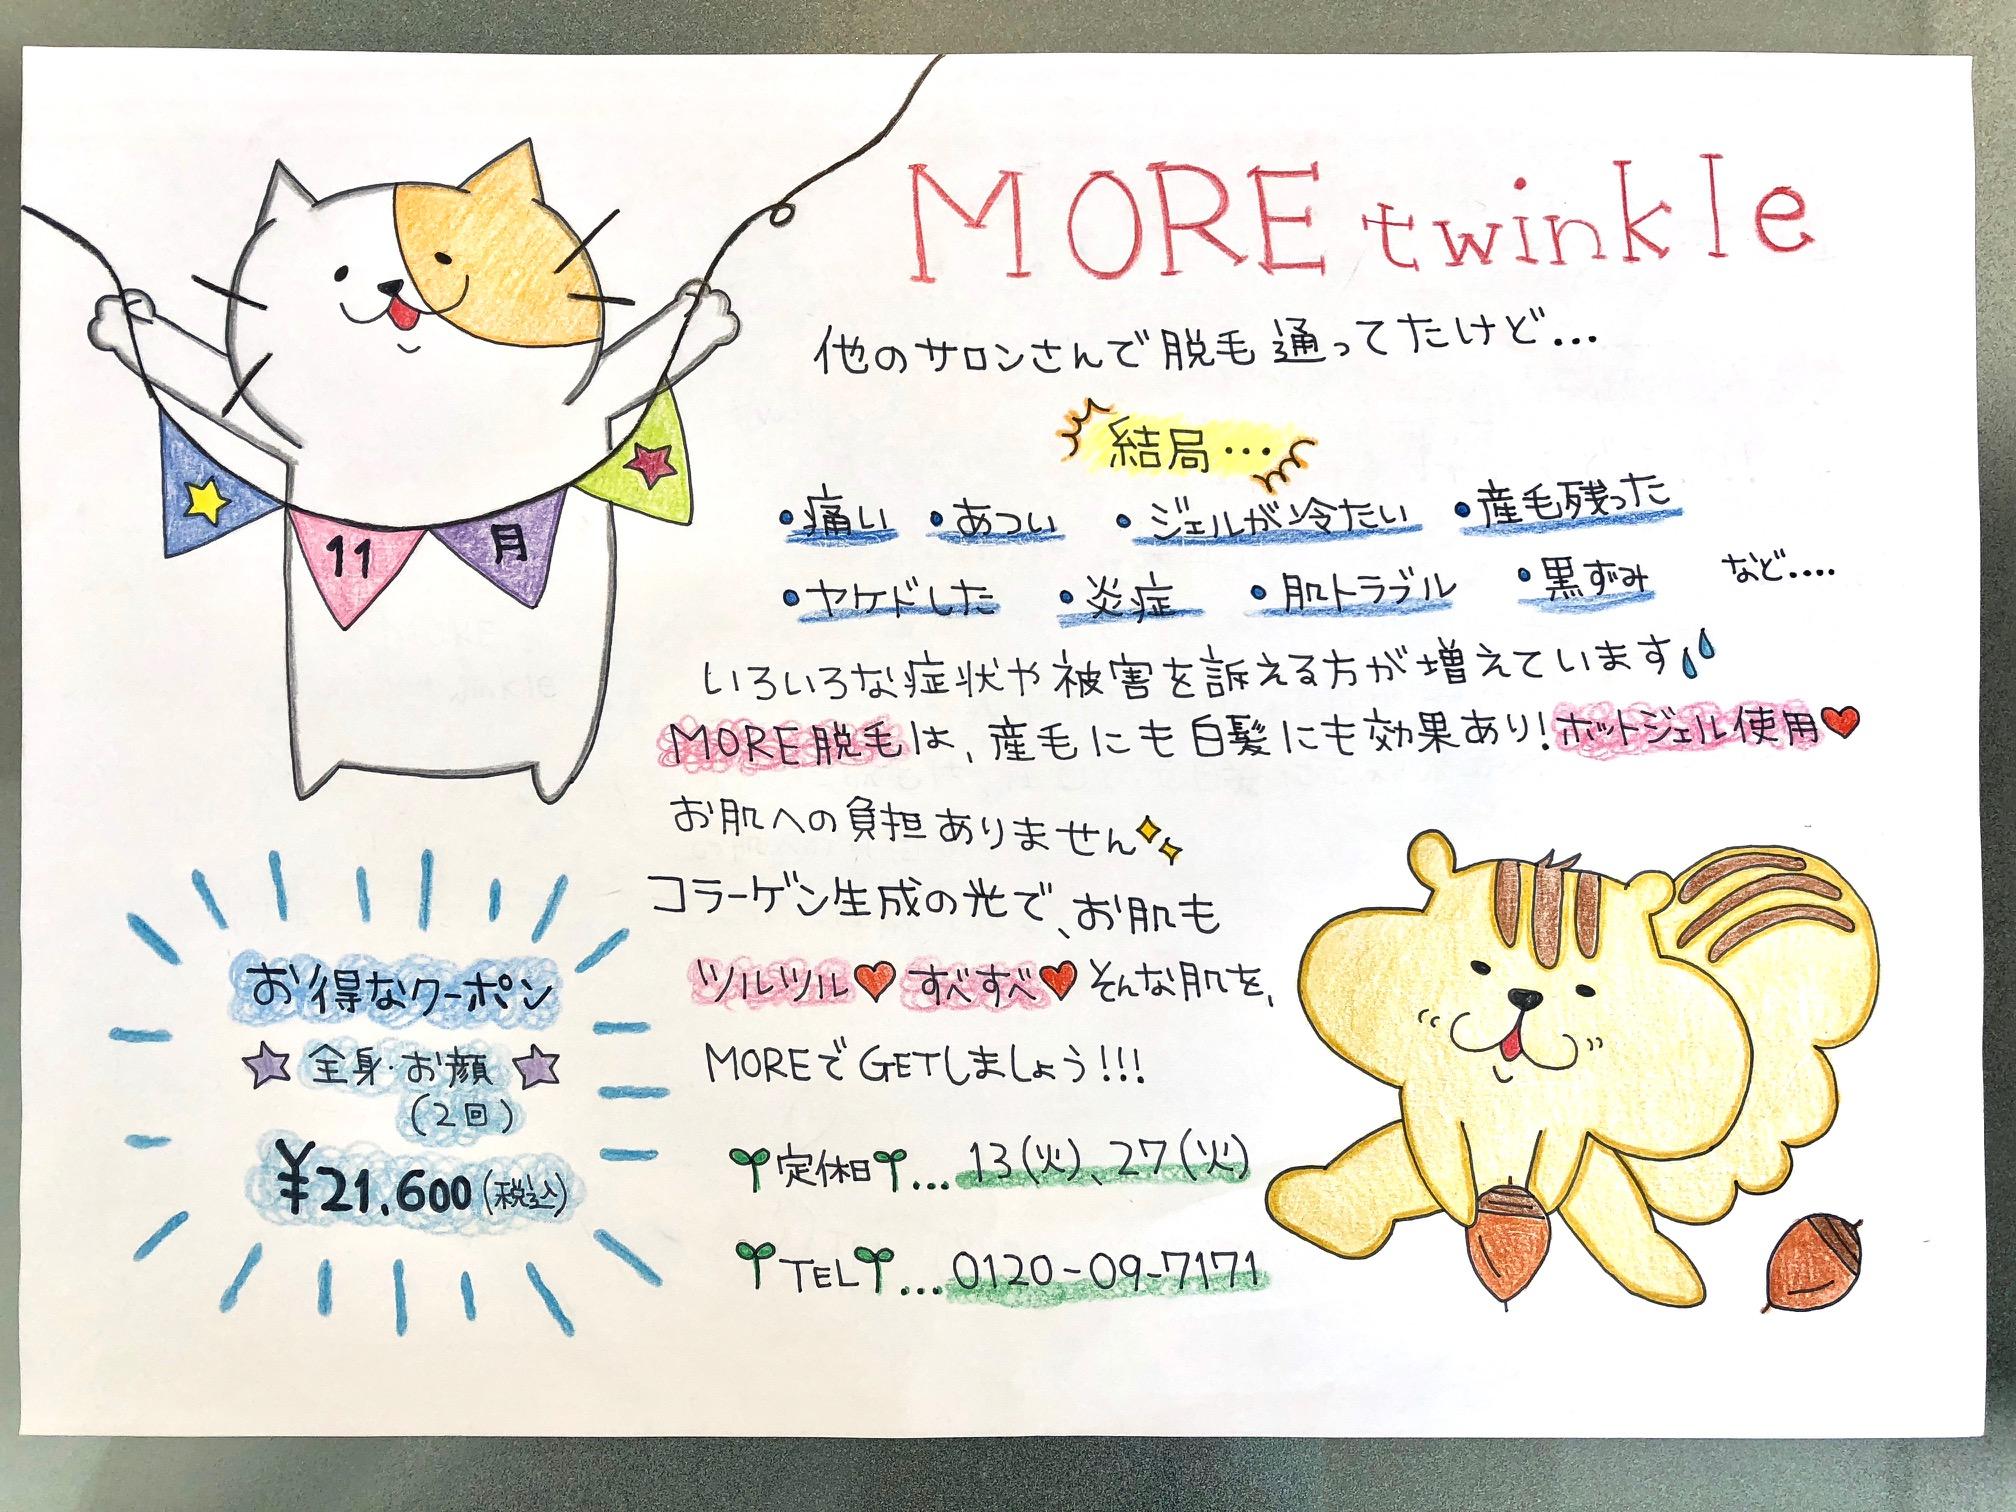 MORE twinkle
他のサロンさんで脱毛通ってたけど...
結局...
・痛い ・あつい ・ジェルが冷たい ・産毛残った
・ヤケドした ・炎症 ・肌トラブル ・黒ずみ など....
いろいろな症状や被害を訴える方が増えています
MORE脱毛は、産毛にも白髪にも効果あり!ホットジェル使用♥
お肌への負担ありません
コラーゲン生成の光で、お肌も
ツルツル♥すべすべ♥そんな肌を、
MOREでGETしましょう!!!
定休日...13(火)、27(火)
TEL...0120-09-7171
11月
お得なクーポン
★全身・お顔★
(2回)
¥21.600(税込)